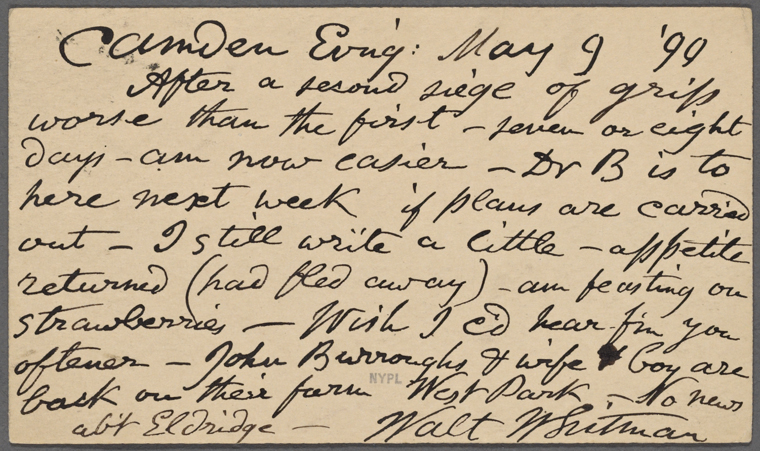 Camden Evn'g: May 9 '90
After a second siege of grip
worse than the first - seven or eight
days - am now easier - Dr B is to
here next week if plans are carried
out - I still write a little - appetite
returned (had fled away) - am feasting on
strawberries - Wish I c'd hear f'm you
oftener - John Burroughs & wife & boy are
back on their farm West Park - No news
NYPL
ab't Eldridge - Walt Whitman